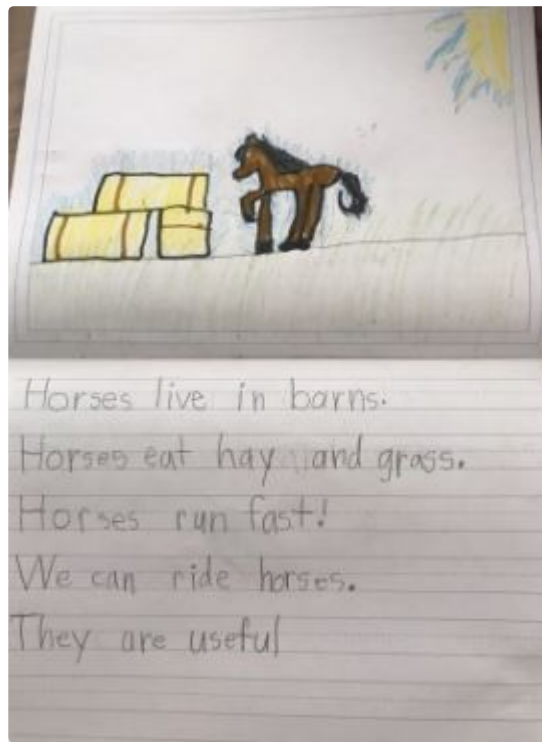 Horses live in barns.
Horses eat hay and grass.
Horses run fast!
We can ride horses.
They are useful